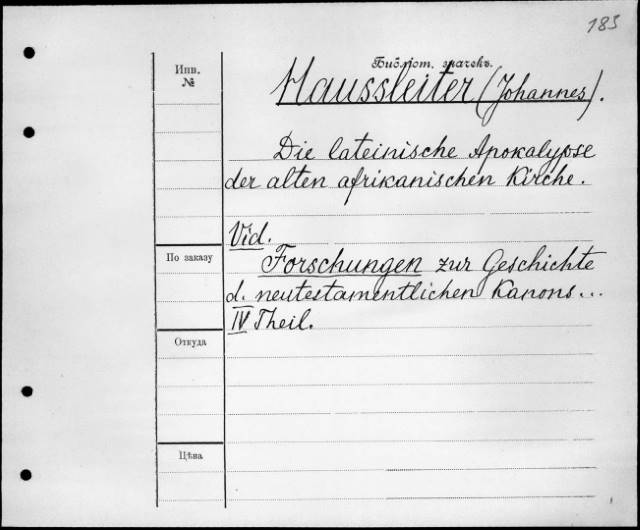 183
Библіот. значекъ.
Инв.
№
Haussleiter (Johannes).
Die lateinische Apokalypse
der alten afrikanischen Kirche.
Vid.
По заказу
Forschungen zur Geschichte
d. neutestamentlichen Kanons...
IV Theil.
Откуда
Цѣна